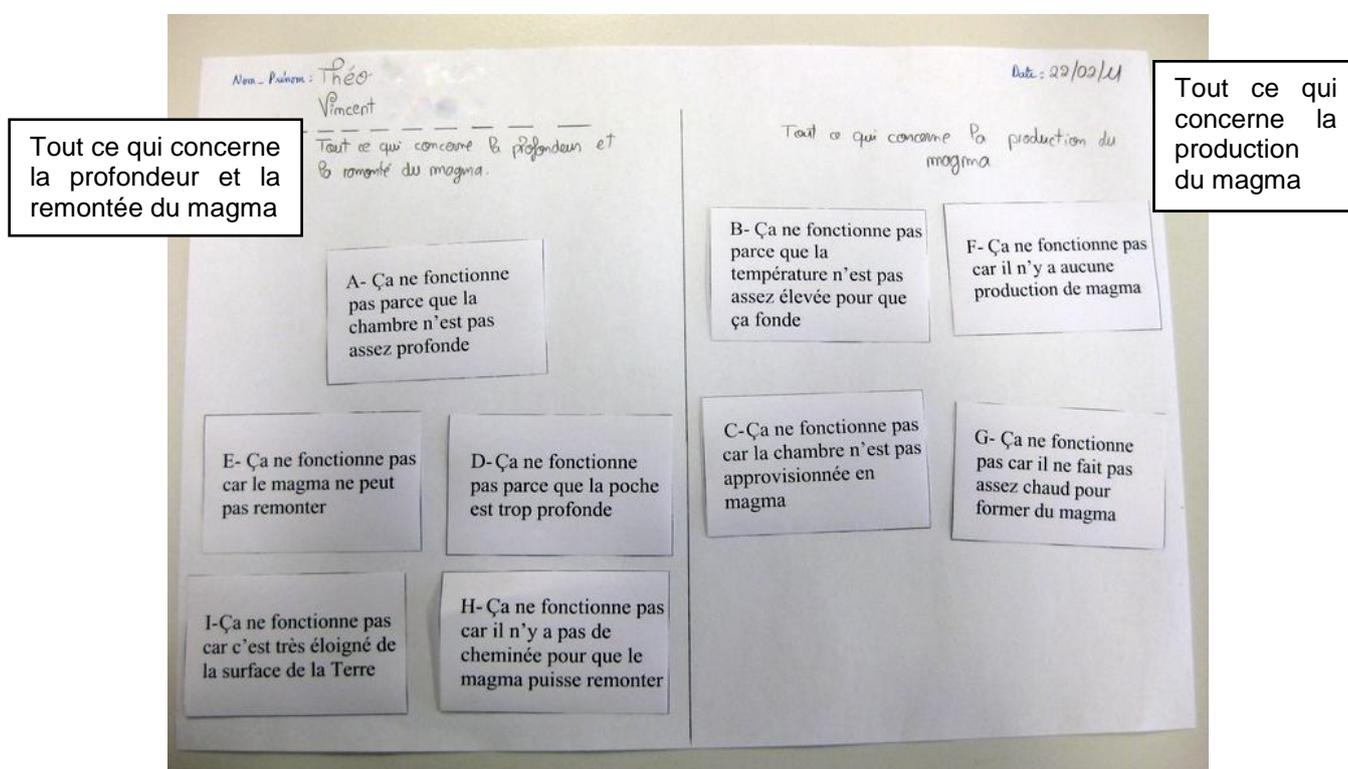 Nom - Prénom : Théo
Vincent
Date : 22/02/11
Tout ce qui concerne
la profondeur et la
remontée du magma
Tout ce qui concerne la profondeur et
la romonté du magma.
A- Ça ne fonctionne
pas parce que la
chambre n'est pas
assez profonde
E- Ça ne fonctionne pas
car le magma ne peut
pas remonter
D- Ça ne fonctionne
pas parce que la poche
est trop profonde
I-Ça ne fonctionne pas
car c'est très éloigné de
la surface de la Terre
H- Ça ne fonctionne pas
car il n'y a pas de
cheminée pour que le
magma puisse remonter
Tout ce qui
concerne la
production
du magma
Tout ce qui concerne la production du
magma
B- Ça ne fonctionne pas
parce que la
température n'est pas
assez élevée pour que
ça fonde
F- Ça ne fonctionne pas
car il n'y a aucune
production de magma
C-Ça ne fonctionne pas
car la chambre n'est pas
approvisionnée en
magma
G- Ça ne fonctionne
pas car il ne fait pas
assez chaud pour
former du magma